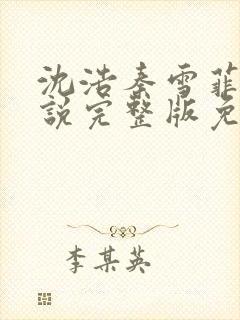 沈浩秦雪菲
说完整版免
李某英